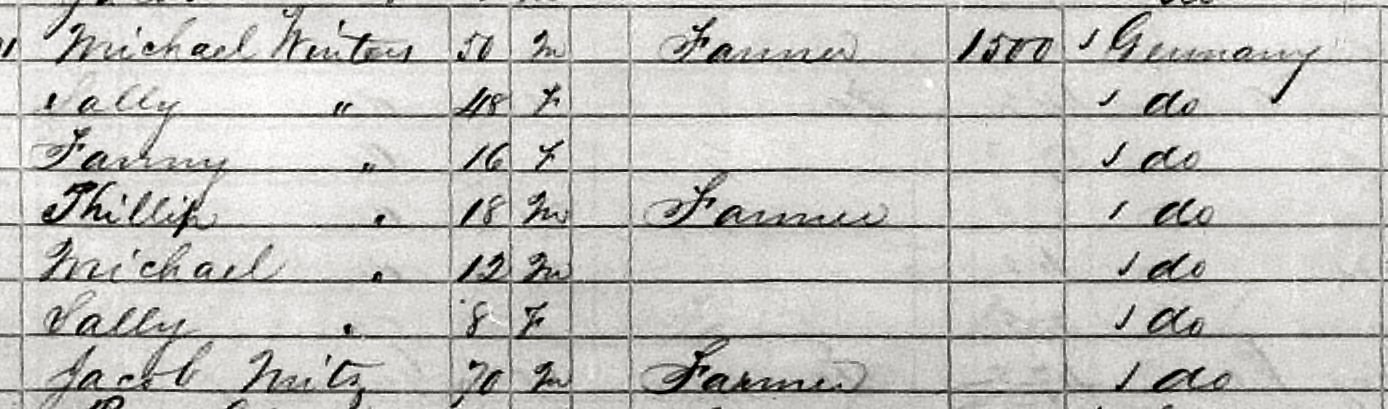 Michael Winters 50 M Farmer 1500 Germany
Sally " 48 F do
Fanny " 16 F do
Phillip " 18 M Farmer do
Michael " 12 M do
Sally " 8 F do
Jacob 70 M Farmer do